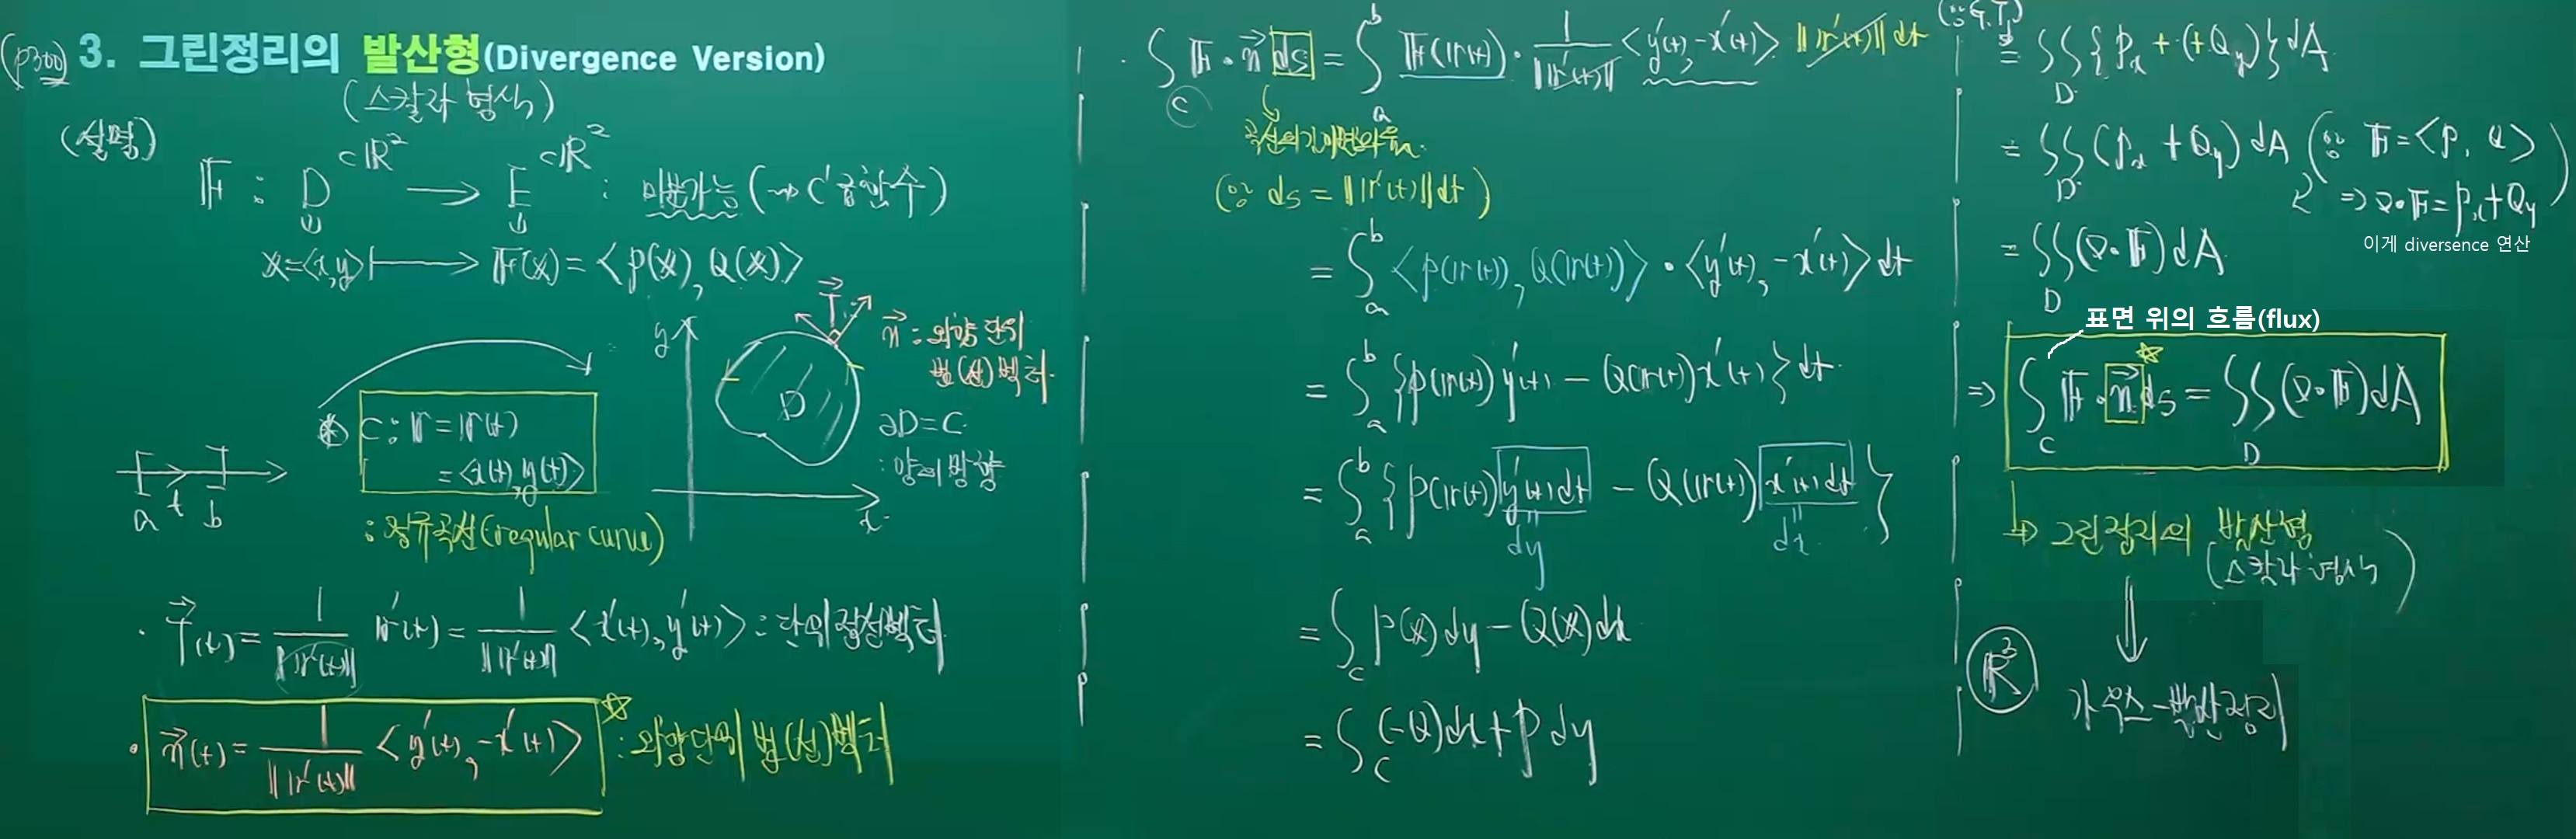 (p300) 3. 그린정리의 발산형(Divergence Version)
(스칼라 형식)
(설명)
𝔽 : D ⊂ℝ² → E ⊂ℝ² : 미분가능 (→ C¹급함수)
𝕩=<x,y> ↦ 𝔽(𝕩) = <P(𝕩), Q(𝕩)>
y
T⃗
n⃗ : 외향 단위
법(선)벡터
D
∂D=C
: 양의 방향
x
a t b
C : 𝕣 = 𝕣(t)
= <x(t), y(t)>
: 정규곡선 (regular curve)
· T⃗(t) = 1/‖𝕣'(t)‖ 𝕣'(t) = 1/‖𝕣'(t)‖ <x'(t), y'(t)> : 단위접선벡터
· n⃗(t) = 1/‖𝕣'(t)‖ <y'(t), -x'(t)> ☆ : 외향단위 법(선)벡터
· ∫_C 𝔽·n⃗ ds = ∫_a^b 𝔽(𝕣(t)) · 1/‖𝕣'(t)‖ <y'(t), -x'(t)> ‖𝕣'(t)‖ dt
(∵ ds = ‖𝕣'(t)‖dt)
= ∫_a^b <P(𝕣(t)), Q(𝕣(t))> · <y'(t), -x'(t)> dt
= ∫_a^b {P(𝕣(t)) y'(t) - Q(𝕣(t)) x'(t)} dt
= ∫_a^b {P(𝕣(t)) y'(t)dt - Q(𝕣(t)) x'(t)dt}
dy dx
= ∫_C P(𝕩)dy - Q(𝕩)dx
= ∫_C (-Q)dx + P dy
(∵ G.T)
= ∬_D {P_x + (+Q_y)} dA
= ∬_D (P_x + Q_y) dA (∵ 𝔽 = <P, Q>
⇒ ∇·𝔽 = P_x + Q_y)
이게 diversence 연산
= ∬_D (∇·𝔽) dA
표면 위의 흐름(flux)
⇒ ∫_C 𝔽·n⃗ ds = ∬_D (∇·𝔽) dA ☆
↳ 그린정리의 발산형
(스칼라 형식)
⇓
ℝ³
가우스-발산정리